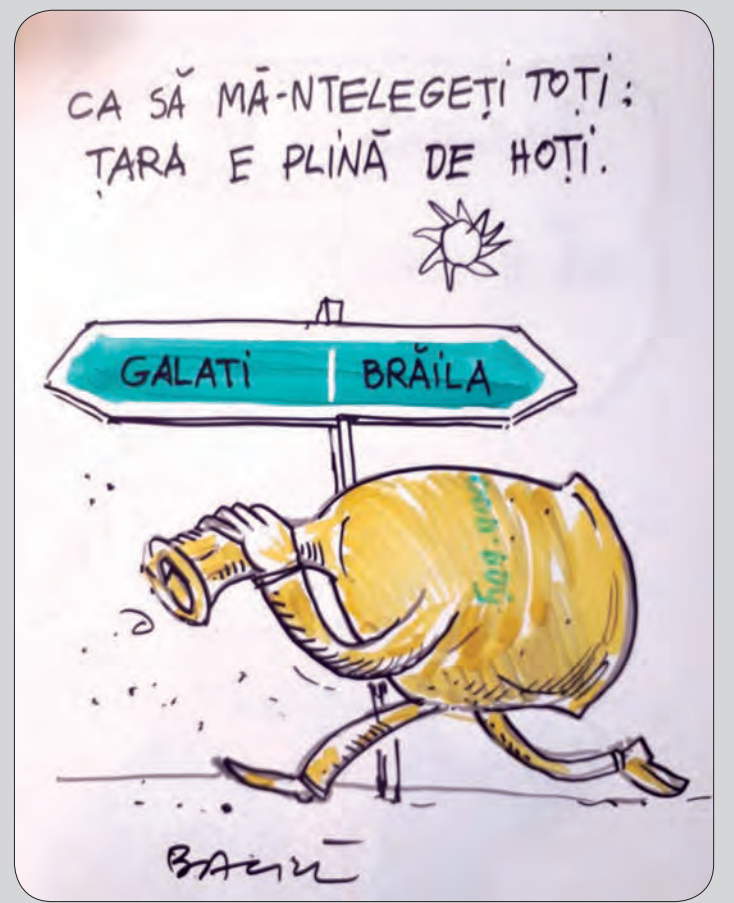 CA SĂ MĂ-NTELEGEȚI TOȚI:
ȚARA E PLINĂ DE HOȚI.
GALATI BRĂILA